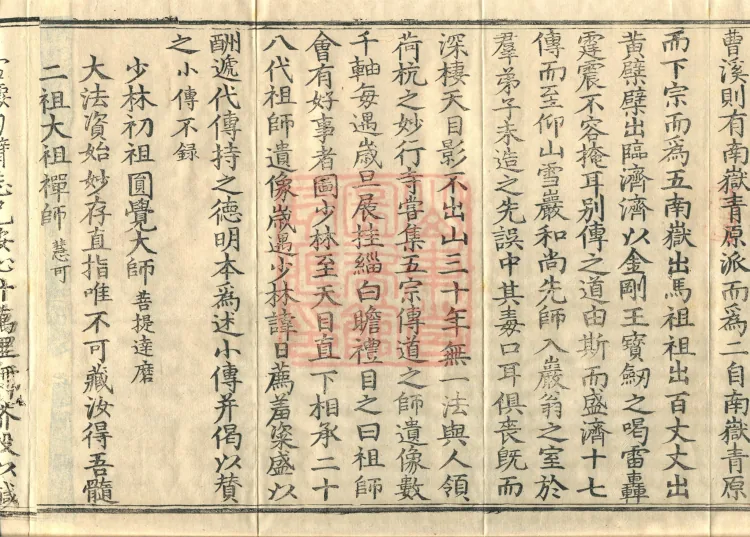 曹溪則有南嶽青原派而爲二自南嶽青原
而下宗而爲五南嶽出馬祖祖出百丈丈出
黃檗檗出臨濟濟以金剛王寶劒之喝雷轟
霆震不容掩耳别傳之道由斯而盛濟十七
傳而至仰山雪巖和尚先師入巖翁之室於
羣弟子未造之先誤中其毒口耳俱喪旣而
深棲天目影不出山三十年無一法與人領
荷杭之妙行寺嘗集五宗傳道之師遺像數
千軸每遇歲旦展挂緇白瞻禮目之曰祖師
會有好事者圖少林至天目直下相承二十
八代祖師遺像歲遇少林諱日薦羞粢盛以
酬遞代傳持之德明本爲述小傳并偈以賛
之小傳不錄
少林初祖圓覺大師 菩提達磨
大法資始妙存直指唯不可藏汝得吾髓
二祖大祖禪師 慧可